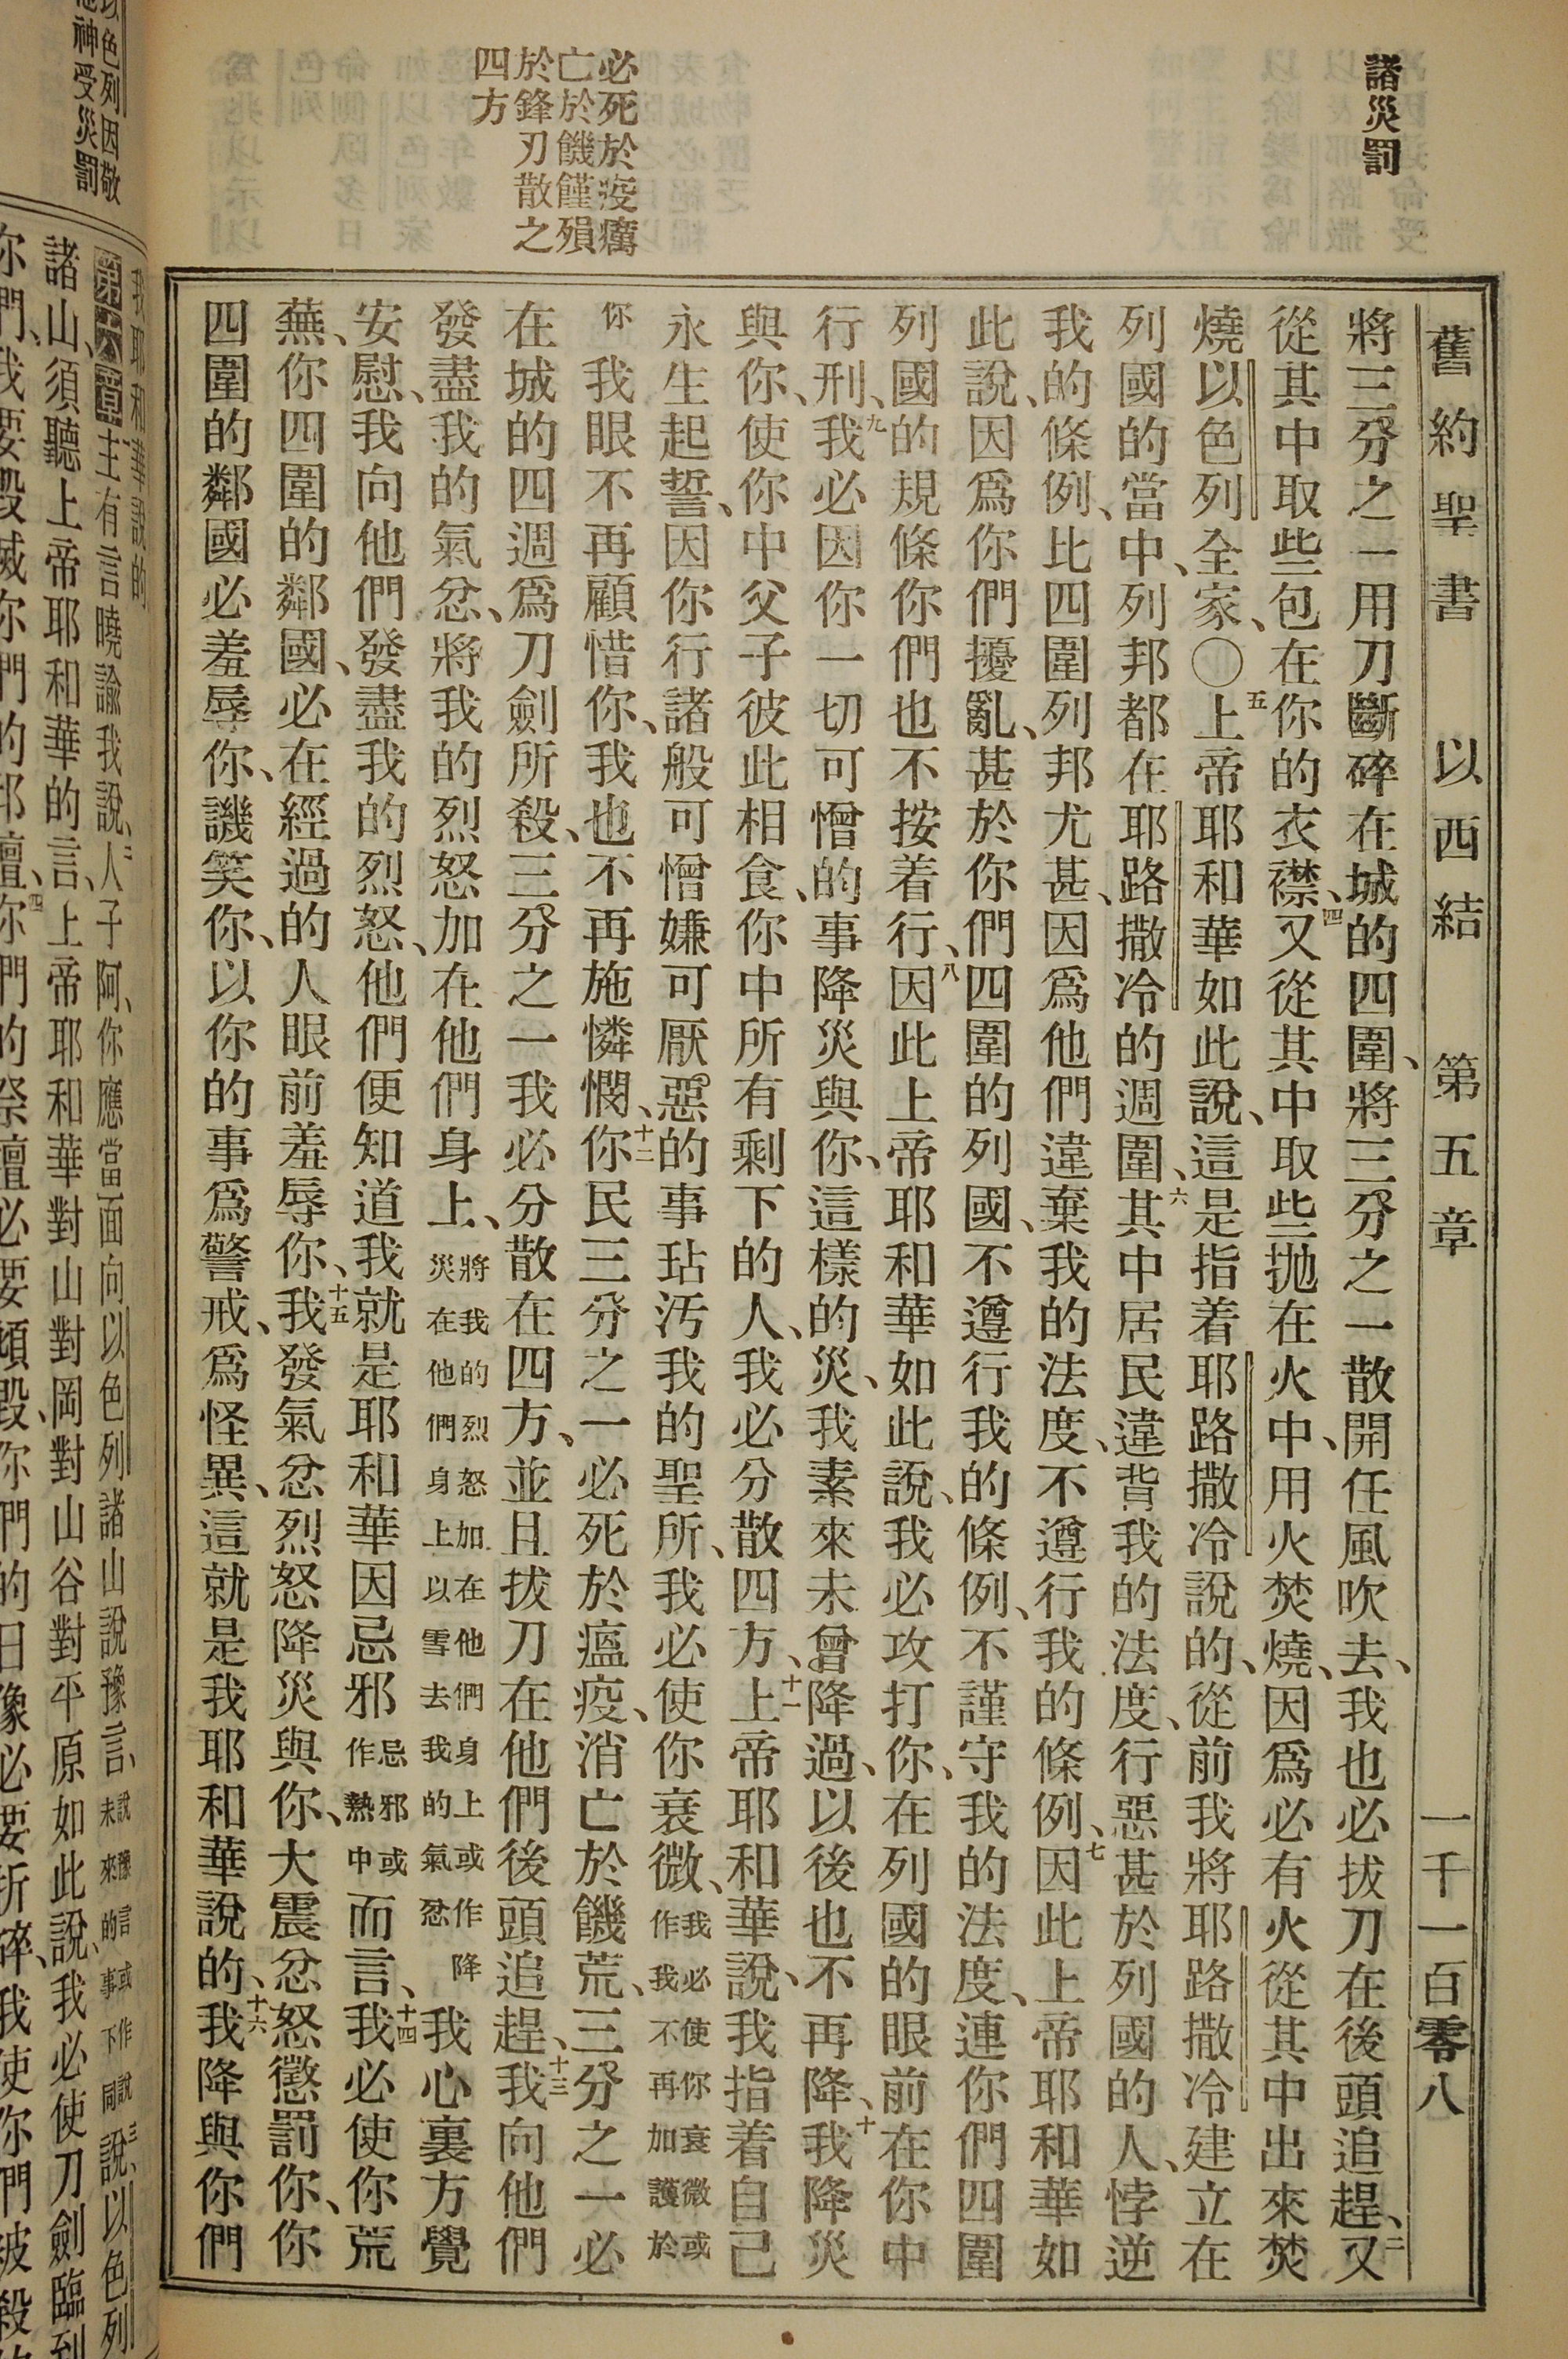 諸災罰
必死於疫癘
亡於饑饉殞
於鋒刃散之
四方
舊約聖書 以西結 第五章 一千一百零八
將三分之一用刀斷碎在城的四圍、將三分之一散開任風吹去、我也必拔刀在後頭追趕、三又
從其中取些包在你的衣襟、四又從其中取些拋在火中、用火焚燒、因爲必有火從其中出來焚
燒以色列全家、〇五上帝耶和華如此說、這是指着耶路撒冷說的、從前我將耶路撒冷建立在
列國的當中、列邦都在耶路撒冷的週圍、六其中居民違背我的法度、行惡甚於列國的人、悖逆
我的條例、比四圍列邦尤甚、因爲他們違棄我的法度、不遵行我的條例、七因此上帝耶和華如
此說、因爲你們擾亂、甚於你們四圍的列國、不遵行我的條例、不謹守我的法度、連你們四圍
列國的規條你們也不按着行、八因此上帝耶和華如此說、我必攻打你、在列國的眼前在你中
行刑、九我必因你一切可憎的事降災與你、這樣的災、我素來未曾降過、以後也不再降、十我降災
與你、使你中父子彼此相食、你中所有剩下的人、我必分散四方、十一上帝耶和華說、我指着自己
永生起誓、因你行諸般可憎嫌可厭惡的事玷汚我的聖所、我必使你衰微、我必使你衰微或作我不再加護於
你我眼不再顧惜你、我也不再施憐憫、十二你民三分之一必死於瘟疫、消亡於饑荒、三分之一必
在城的四週爲刀劍所殺、三分之一我必分散在四方、並且拔刀在他們後頭追趕、十三我向他們
發盡我的氣忿、將我的烈怒加在他們身上、將我的烈怒加在他們身上或作降災在他們身上以雪去我的氣忿我心裏方覺
安慰、我向他們發盡我的烈怒、他們便知道我就是耶和華因忌邪忌邪或作熱中而言、十四我必使你荒
蕪、你四圍的鄰國、必在經過的人眼前羞辱你、十五我發氣忿烈怒降災與你、大震忿怒懲罰你、你
四圍的鄰國必羞辱你、譏笑你、以你的事爲警戒、爲怪異、這就是我耶和華說的、十六我降與你們
以色列因敬
神受災罰
我耶和華說的
第六章主有言曉諭我說、二人子阿、你應當面向以色列諸山說豫言、說豫言或作說未來的事下同三說、以色列
諸山、須聽上帝耶和華的言、上帝耶和華對山對岡對山谷對平原如此說、我必使刀劍臨到
你們、我要毀滅你們的邱壇、四你們的祭壇必要傾毀、你們的日像必要折碎、我使你們被殺